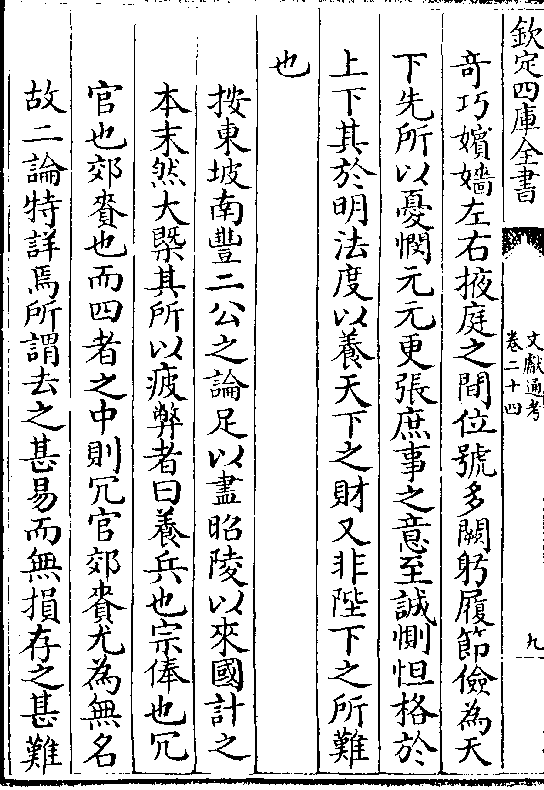 欽定四庫全書
文獻通考
卷二十四
九
竒巧嬪嬙左右掖庭之間位號多闕躬履節儉為天
下先所以憂憫元元更張庶事之意至誠惻怛格於
上下其於明法度以養天下之財又非陛下之所難
也
按東坡南豐二公之論足以盡昭陵以來國計之
本末然大槩其所以疲弊者曰養兵也宗俸也冗
官也郊賚也而四者之中則冗官郊賚尤為無名
故二論特詳焉所謂去之甚易而無損存之甚難